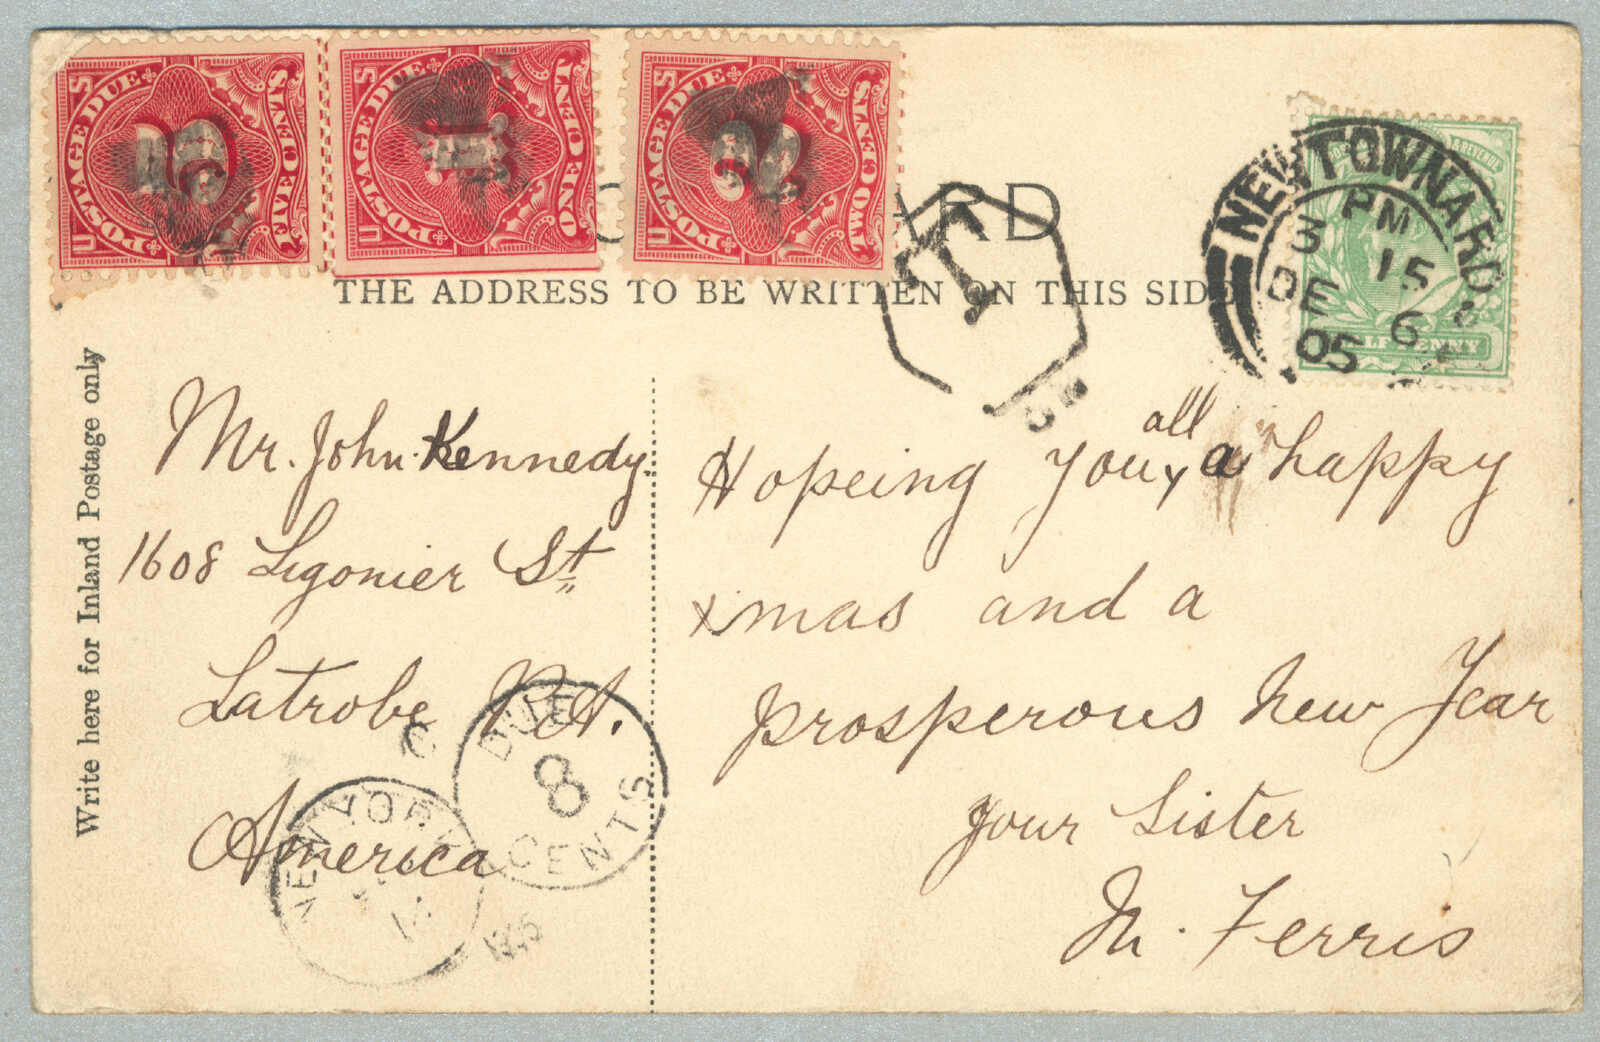 U S
POSTAGE DUE
5
FIVE CENTS
U S
POSTAGE DUE
1
ONE CENT
U S
POSTAGE DUE
2
TWO CENTS
ARD
THE ADDRESS TO BE WRITTEN ON THIS SIDE
T
NEWTOWNARDS
3 15 PM
DE 6
05
POSTAGE & REVENUE
HALF PENNY
Write here for Inland Postage only
Mr. John Kennedy.
1608 Ligonier St
Latrobe PA.
America
Hopeing you all a happy
xmas and a
prosperous New Year
your Sister
M. Ferris
DUE
8
CENTS
NEW YORK
1905